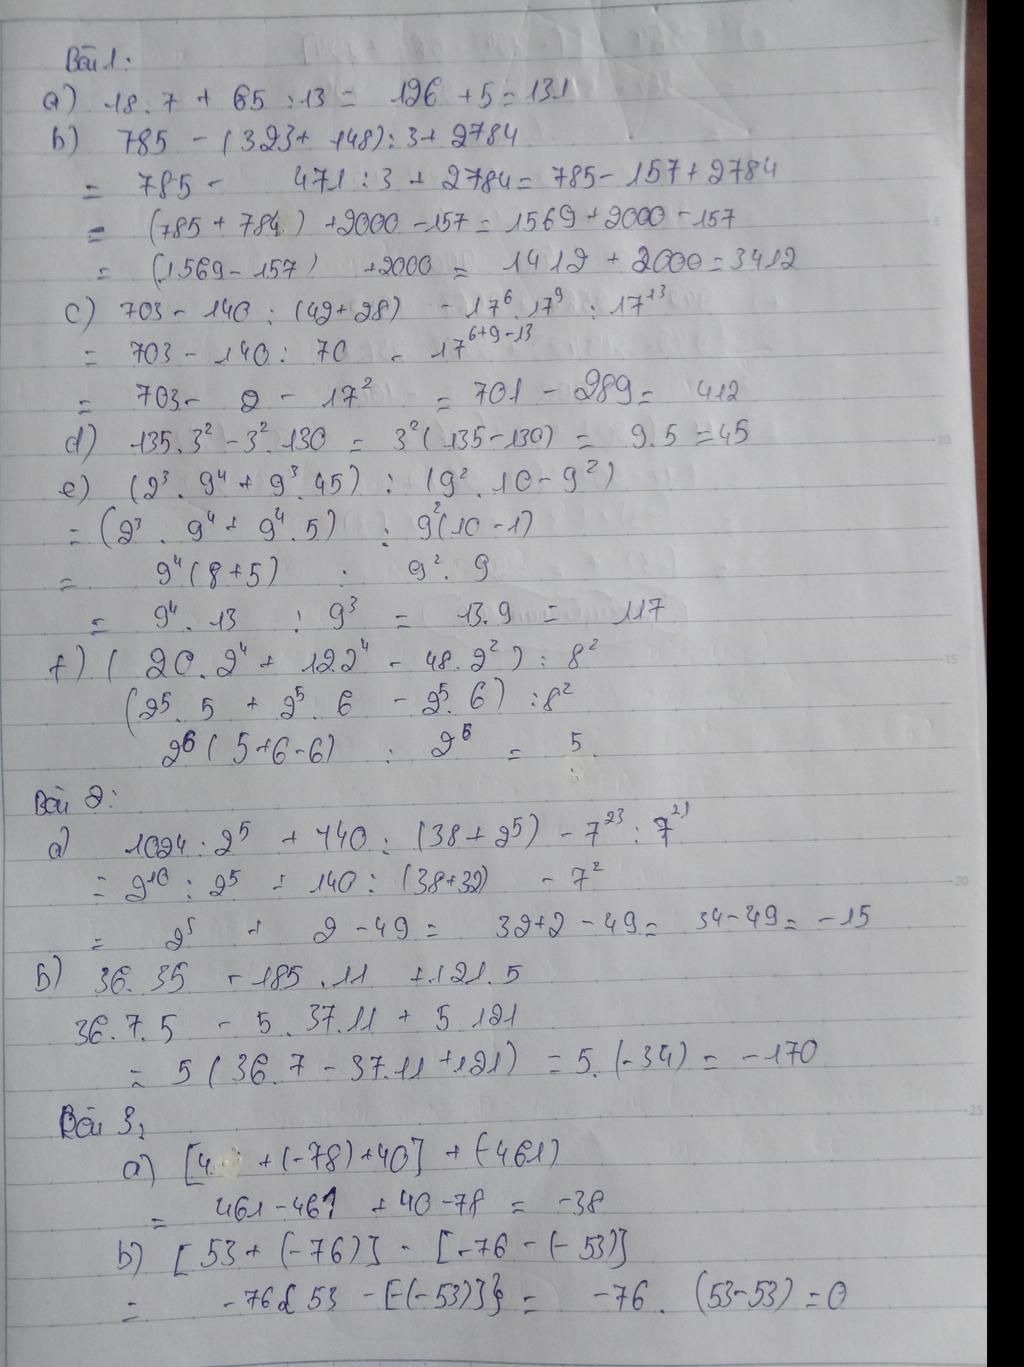 Bài 1:
a) 18.7 + 65 : 13 = 126 + 5 = 131
b) 785 - (323 + 148) : 3 + 2784
= 785 - 471 : 3 + 2784 = 785 - 157 + 2784
= (785 + 784) + 2000 - 157 = 1569 + 2000 - 157
= (1569 - 157) + 2000 = 1412 + 2000 = 3412
c) 703 - 140 : (42 + 28) - 17⁶ . 17⁹ : 17¹³
= 703 - 140 : 70 - 17⁶⁺⁹⁻¹³
= 703 - 2 - 17² = 701 - 289 = 412
d) 135.3² - 3².130 = 3²(135 - 130) = 9.5 = 45
e) (2³ . 9⁴ + 9³ . 45) : (9² . 10 - 9²)
= (2³ . 9⁴ + 9⁴ . 5) : 9²(10 - 1)
= 9⁴(8 + 5) : 9² . 9
= 9⁴ . 13 : 9³ = 13.9 = 117
f) (20.2⁴ + 12.2⁴ - 48.2²) : 8²
(2⁵ . 5 + 2⁵ . 6 - 2⁵ . 6) : 8²
2⁶(5 + 6 - 6) : 2⁶ = 5
Bài 2:
a) 1024 : 2⁵ + 140 : (38 + 2⁵) - 7²³ : 7²¹
= 2¹⁰ : 2⁵ + 140 : (38 + 32) - 7²
= 2⁵ + 2 - 49 = 32 + 2 - 49 = 34 - 49 = -15
b) 36.35 - 185.11 + 121.5
36.7.5 - 5.37.11 + 5 121
= 5(36.7 - 37.11 + 121) = 5.(-34) = -170
Bài 3:
a) [4 + (-78) + 40] + (-461)
= 461 - 461 + 40 - 78 = -38
b) [53 + (-76)] - [-76 - (-53)]
= -76{53 - [-(-53)]} = -76 . (53 - 53) = 0